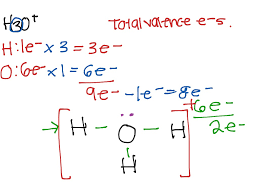 H3O+ Total valence e-s.
H: 1e- x 3 = 3e-
O: 6e- x 1 = 6e-
9e- -1e- = 8e-
-6e-
2e-
H - O - H
H